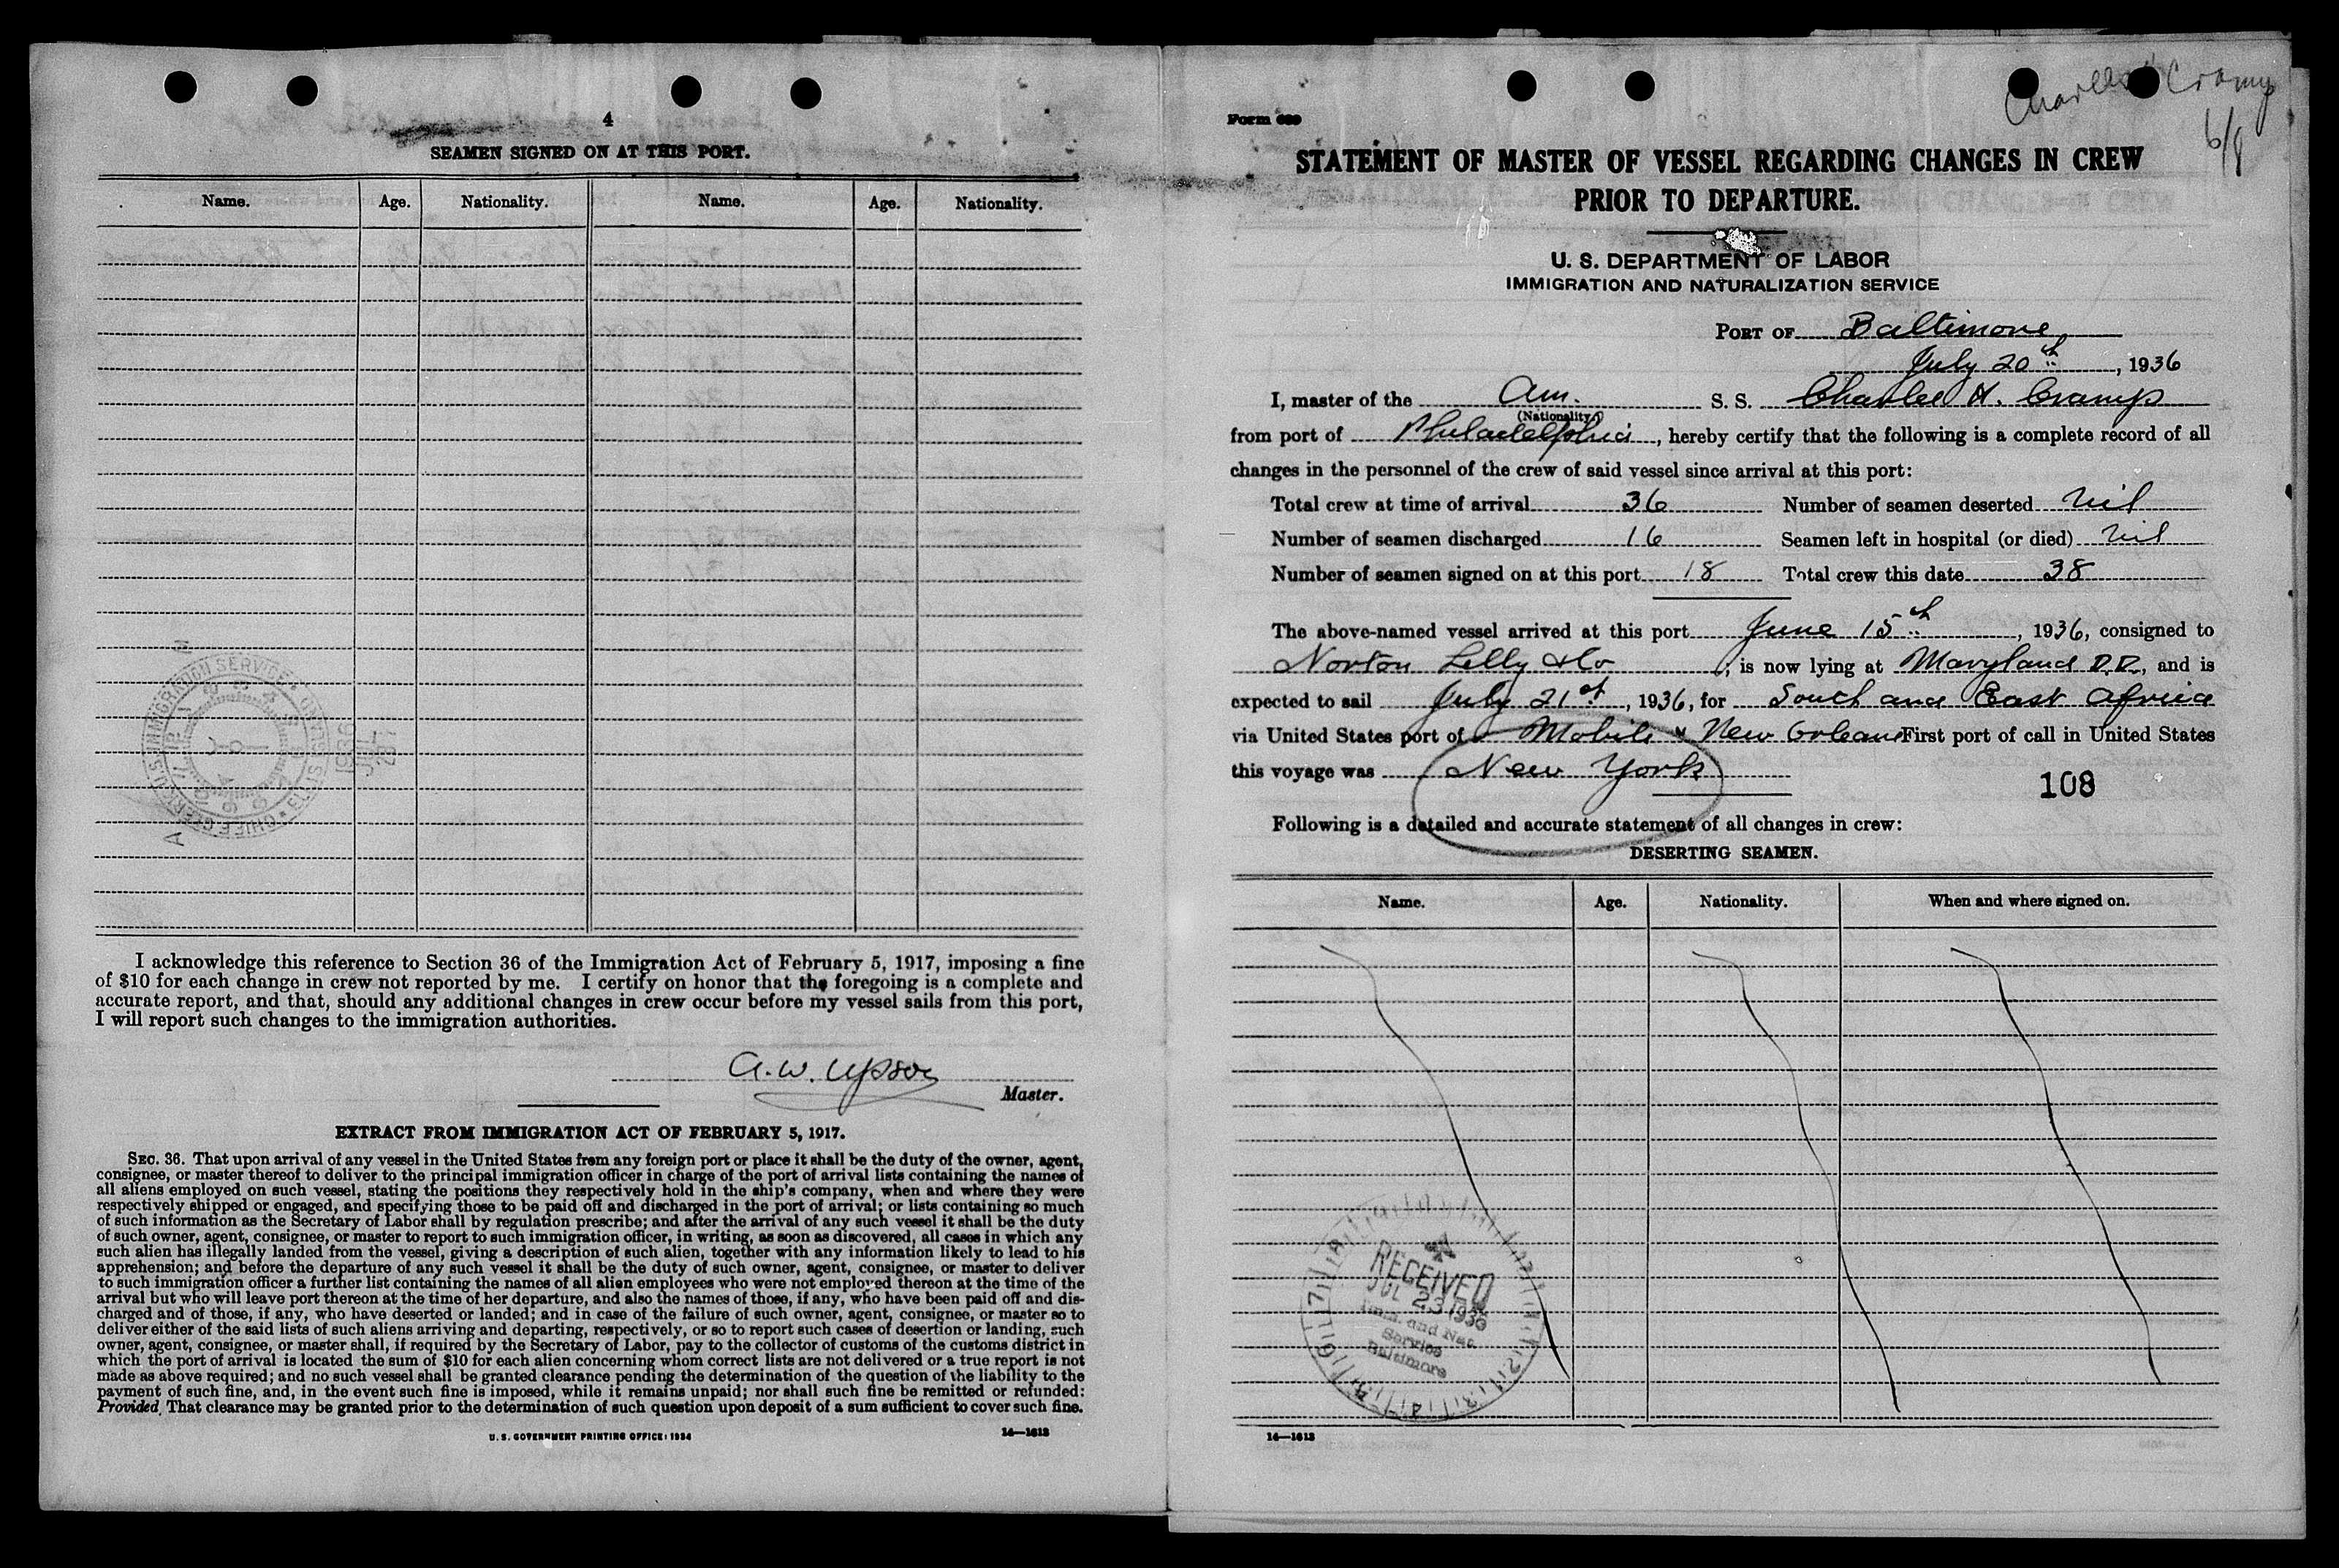 4
SEAMEN SIGNED ON AT THIS PORT.
Name. Age. Nationality. Name. Age. Nationality.
I acknowledge this reference to Section 36 of the Immigration Act of February 5, 1917, imposing a fine
of $10 for each change in crew not reported by me. I certify on honor that the foregoing is a complete and
accurate report, and that, should any additional changes in crew occur before my vessel sails from this port,
I will report such changes to the immigration authorities.
A. W. Upson
Master.
EXTRACT FROM IMMIGRATION ACT OF FEBRUARY 5, 1917.
SEC. 36. That upon arrival of any vessel in the United States from any foreign port or place it shall be the duty of the owner, agent,
consignee, or master thereof to deliver to the principal immigration officer in charge of the port of arrival lists containing the names of
all aliens employed on such vessel, stating the positions they respectively hold in the ship's company, when and where they were
respectively shipped or engaged, and specifying those to be paid off and discharged in the port of arrival; or lists containing so much
of such information as the Secretary of Labor shall by regulation prescribe; and after the arrival of any such vessel it shall be the duty
of such owner, agent, consignee, or master to report to such immigration officer, in writing, as soon as discovered, all cases in which any
such alien has illegally landed from the vessel, giving a description of such alien, together with any information likely to lead to his
apprehension; and before the departure of any such vessel it shall be the duty of such owner, agent, consignee, or master to deliver
to such immigration officer a further list containing the names of all alien employees who were not employed thereon at the time of the
arrival but who will leave port thereon at the time of her departure, and also the names of those, if any, who have been paid off and dis-
charged and of those, if any, who have deserted or landed; and in case of the failure of such owner, agent, consignee, or master so to
deliver either of the said lists of such aliens arriving and departing, respectively, or so to report such cases of desertion or landing, such
owner, agent, consignee, or master shall, if required by the Secretary of Labor, pay to the collector of customs of the customs district in
which the port of arrival is located the sum of $10 for each alien concerning whom correct lists are not delivered or a true report is not
made as above required; and no such vessel shall be granted clearance pending the determination of the question of the liability to the
payment of such fine, and, in the event such fine is imposed, while it remains unpaid; nor shall such fine be remitted or refunded:
Provided, That clearance may be granted prior to the determination of such question upon deposit of a sum sufficient to cover such fine.
U. S. GOVERNMENT PRINTING OFFICE: 1934
14—1613
Charles Cramp
6/8
Form 689
STATEMENT OF MASTER OF VESSEL REGARDING CHANGES IN CREW
PRIOR TO DEPARTURE.
U. S. DEPARTMENT OF LABOR
IMMIGRATION AND NATURALIZATION SERVICE
PORT OF Baltimore
July 20th, 1936
I, master of the Am. S. S. Charles H. Cramp
(Nationality)
from port of Philadelphia, hereby certify that the following is a complete record of all
changes in the personnel of the crew of said vessel since arrival at this port:
Total crew at time of arrival 36 Number of seamen deserted nil
Number of seamen discharged 16 Seamen left in hospital (or died) nil
Number of seamen signed on at this port 18 Total crew this date 38
The above-named vessel arrived at this port June 15th, 1936, consigned to
Norton Lilly & Co, is now lying at Maryland D.D., and is
expected to sail July 21st, 1936, for South and East Africa
via United States port of Mobile & New Orleans First port of call in United States
this voyage was New York
108
Following is a detailed and accurate statement of all changes in crew:
DESERTING SEAMEN.
Name. Age. Nationality. When and where signed on.
RECEIVED
JUL 23 1936
Imm. and Nat.
Service
Baltimore
14—1613